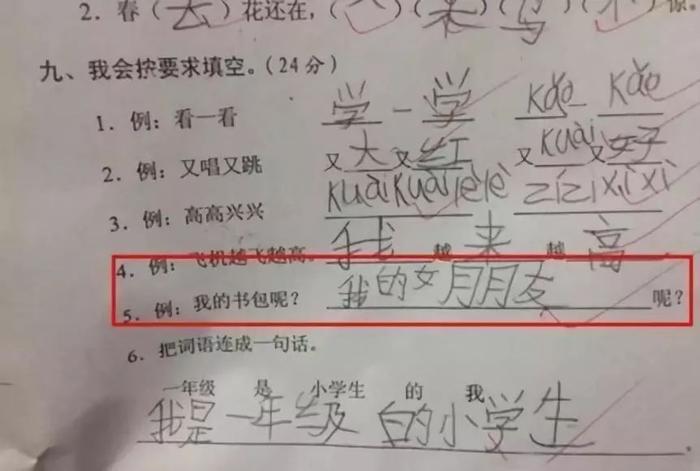 2. 春（去）花还在，（人）（来）（鸟）（不）惊。
九、我会按要求填空。（24分）
1. 例：看一看 学一学 kǎo kǎo
2. 例：又唱又跳 又大又红 又kuài又好
3. 例：高高兴兴 kuàikuàilèlè zǐzǐxìxì
4. 例：飞机越飞越高。 我越来越高
5. 例：我的书包呢？ 我的女朋朋友呢？
6. 把词语连成一句话。
一年级 是 小学生 的 我
我是一年级的小学生。